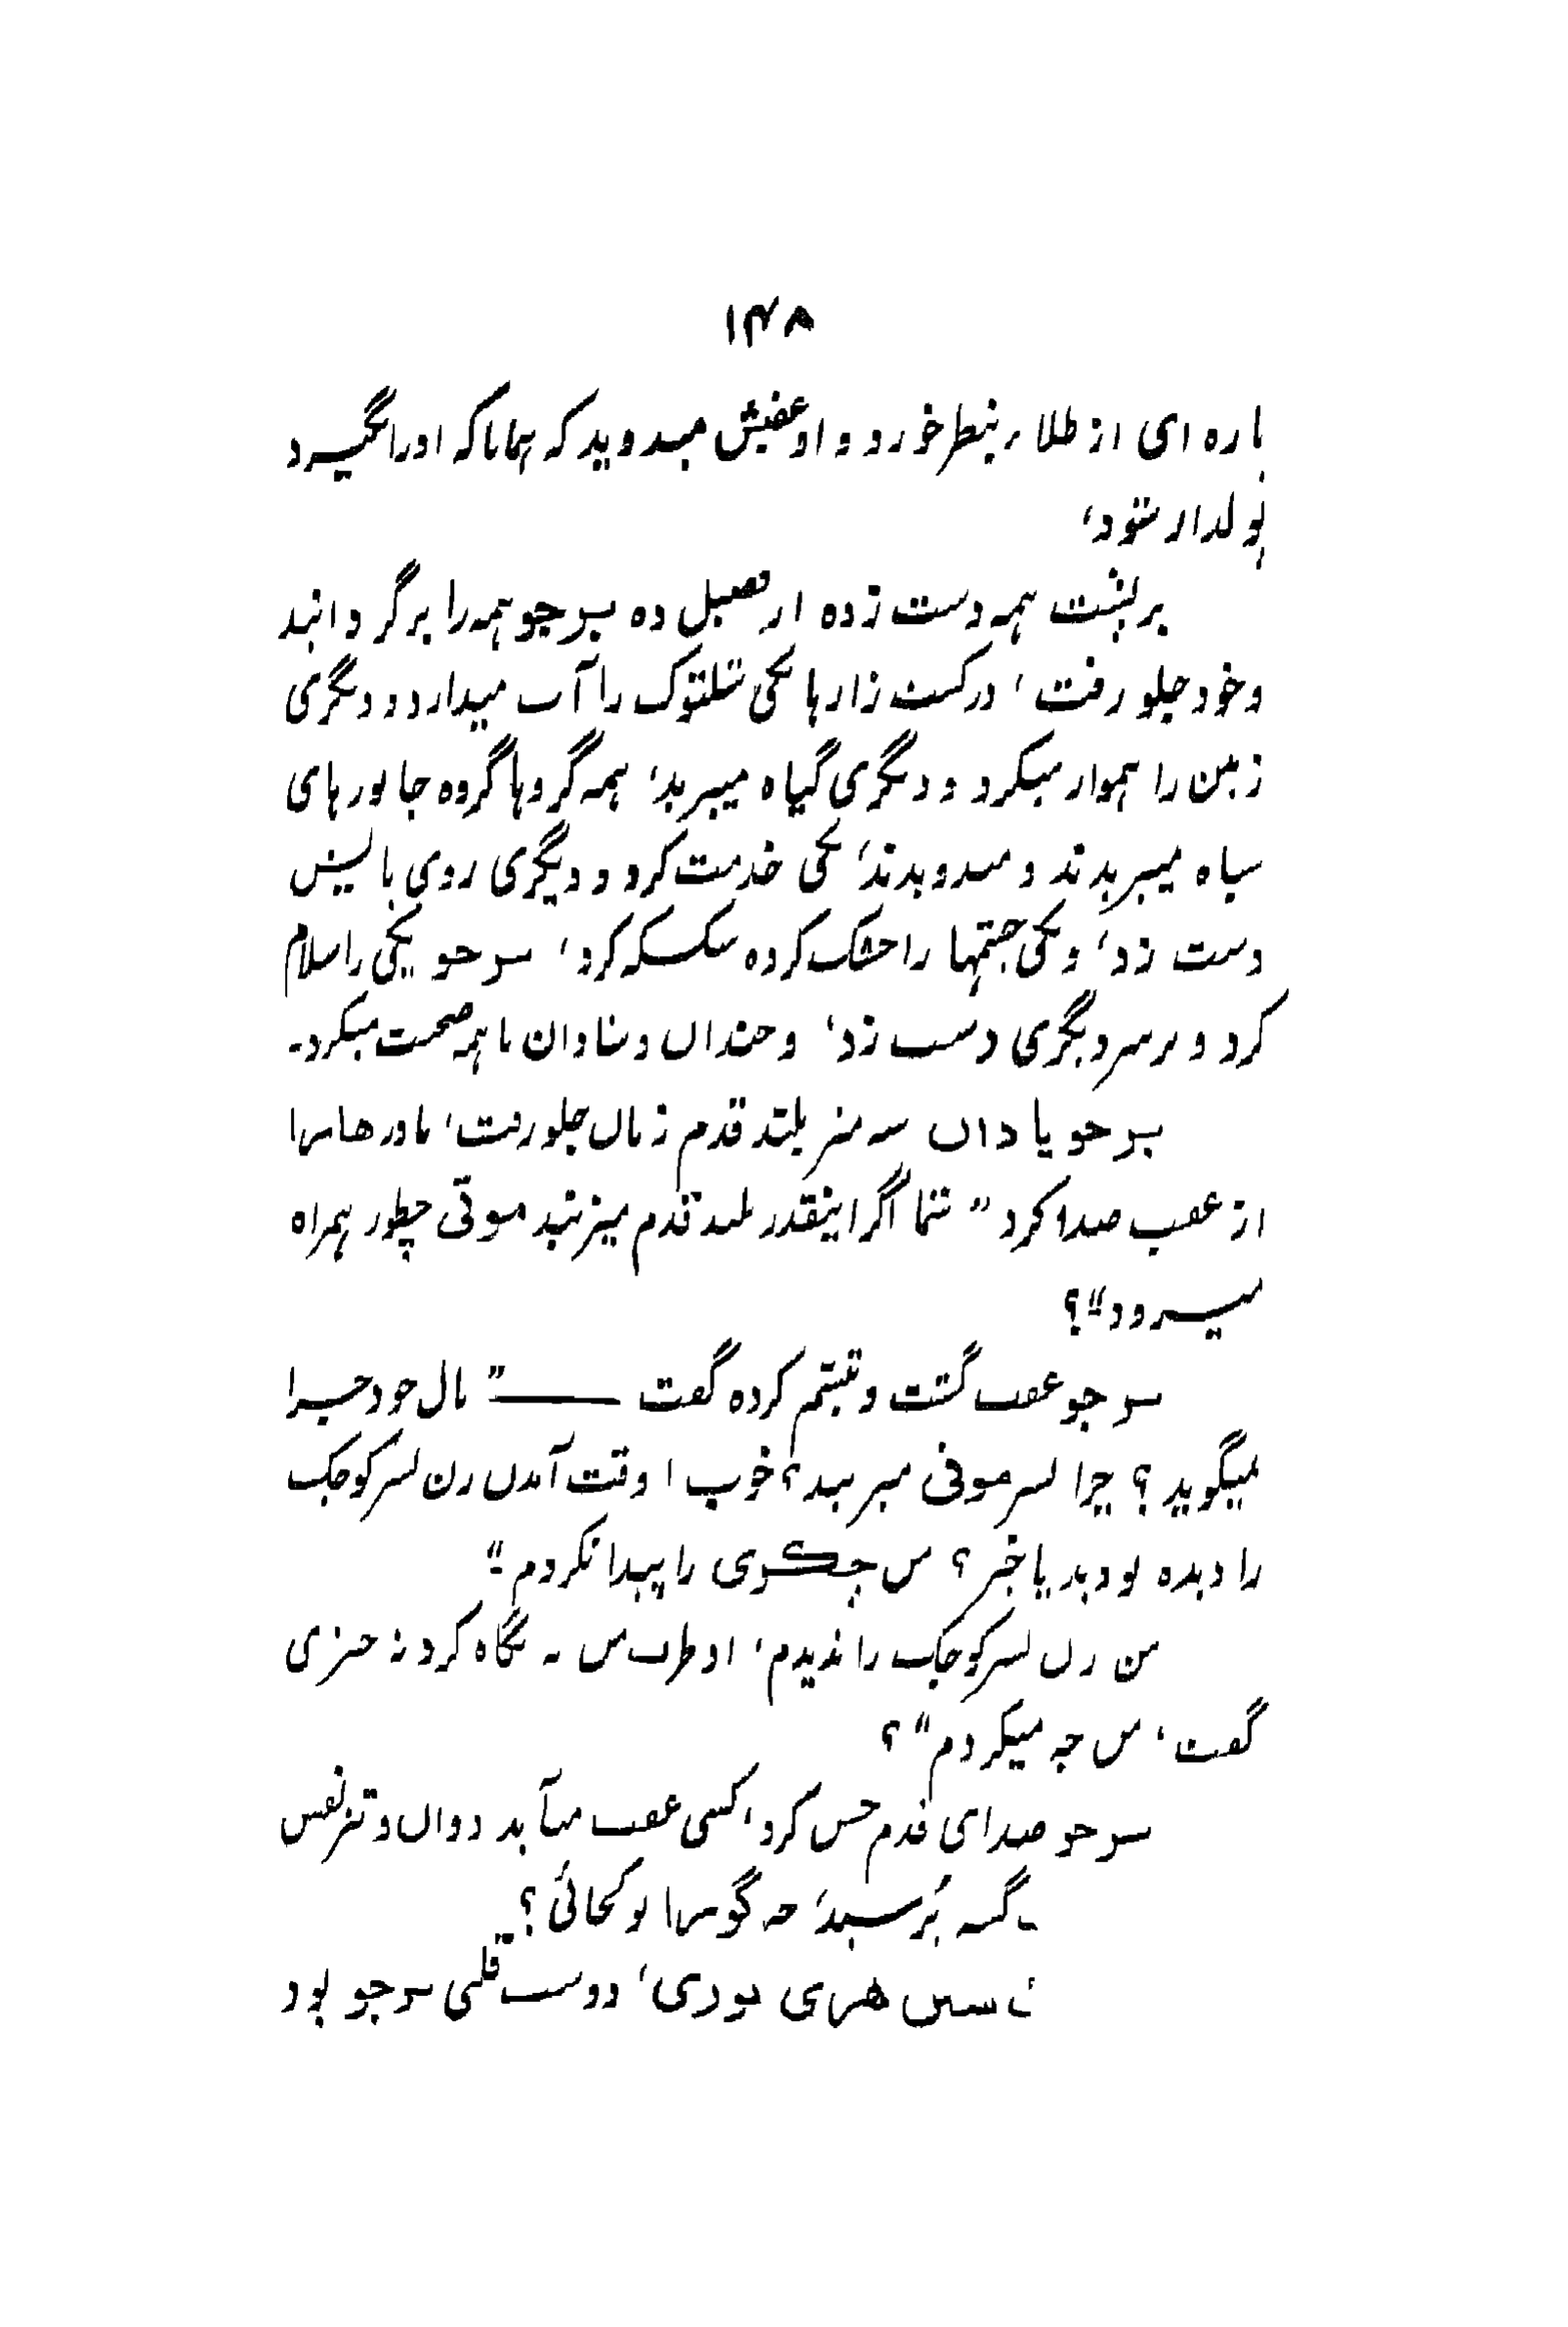 ۱۴۸
پاره ای از طلا بنظر خورد و او عقبش میدوید که همانا که او را بگیرد
پولدار شود،
بر پشت همه دست زده از فصیل ده سوجو همه را برگردانید
و خود جلو رفت، در کشت زارها یکی شلتوک را آب میدارد و دیگری
زمین را هموار میکرد و دیگری گیاه میبرید، همه گروها گروه جانورهای
سیاه میبریدند و میدویدند، یکی خدمت کرد و دیگری روی پالیش
دست زد، و یکی چشمها را خشک کرده سکسکه کرد، سوجو یکی را سلام
کرد و بر سر دیگری دست زد، و خندان و شادان با همه صحبت میکرد۔
سوجو یا دان سه متر بلند قدم زنان جلو رفت، مادر
از عقب صدا کرد "شما اگر اینقدر بلند قدم میزنید موتی چطور همراه
میرود"؟
سوجو عقب گشت و تبسم کرده گفت —— "مال خود چرا
نمیگوید؟ چرا بسر موتی میبرید؟ خوب! وقت آمدن زن پسر کوچک
را دیده بودید یا خیر؟ من چکری را پیدا نکردم۔"
من زن پسر کوچک را ندیدم، او طرف من نه نگاه کرد نه چیزی
گفت، من چه میکردم"؟
سوجو صدای قدم حس کرد، کسی عقب میآید دوان و تیز نفس
گسه پرسید، چه تو کجائی؟
هری دوست قلبی سوجو بود